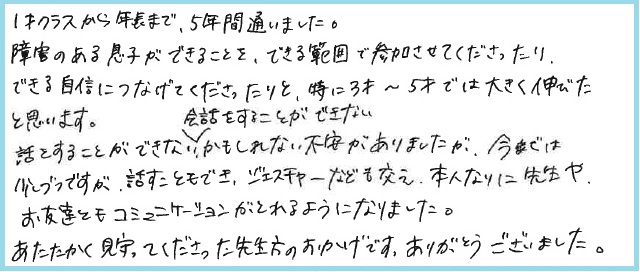 1才クラスから年長まで、5年間通いました。
障害のある息子ができることを、できる範囲で参加させてくださったり、
できる自信につなげてくださったりと、特に3才～5才では大きく伸びた
と思います。
会話をすることができない
話をすることができないかもしれない不安がありましたが、今では
少しづつですが、話すこともでき、ジェスチャーなども交え、本人なりに先生や、
お友達ともコミュニケーションがとれるようになりました。
あたたかく見守ってくださった先生方のおかげです。ありがとうございました。